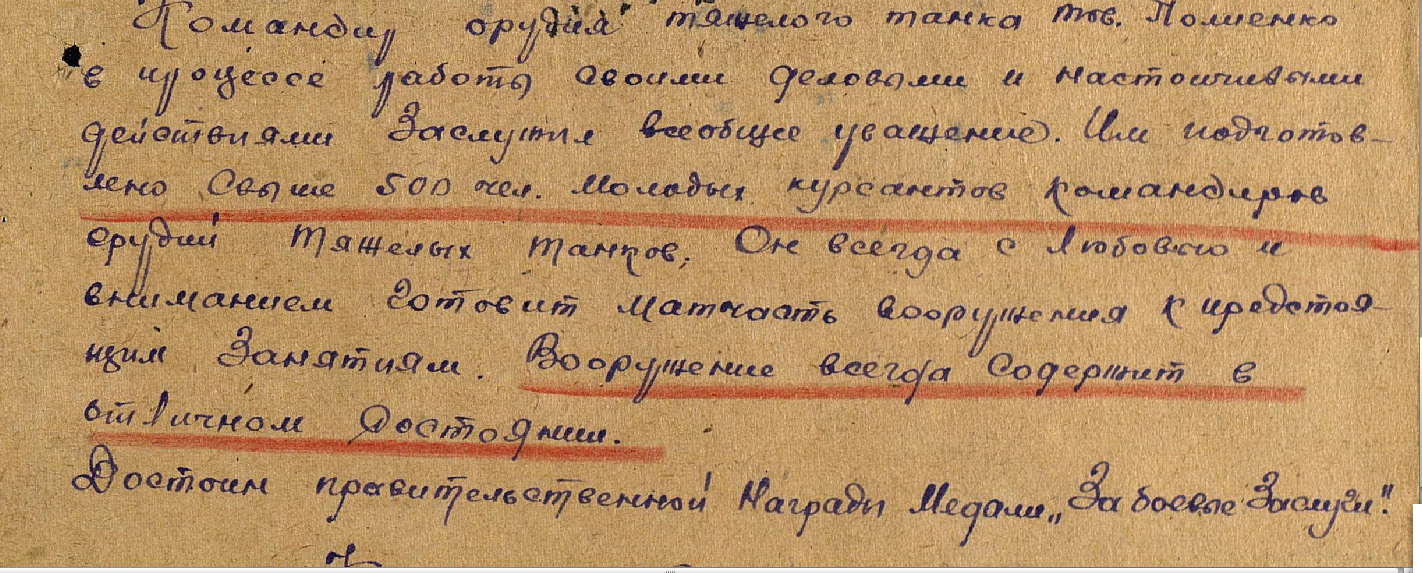 Командир орудия тяжелого танка тов. Полиенко
в процессе работы своими деловыми и настойчивыми
действиями Заслужил всеобщее уважение. Им подготов-
лено Свыше 500 чел. Молодых курсантов командиров
орудий тяжелых танков. Он всегда с любовью и
вниманием готовит Матчасть вооружения к предстоя-
щим Занятиям. Вооружение всегда Содержит в
отличном состоянии.
Достоин правительственной Награды Медали „За боевые Заслуги".